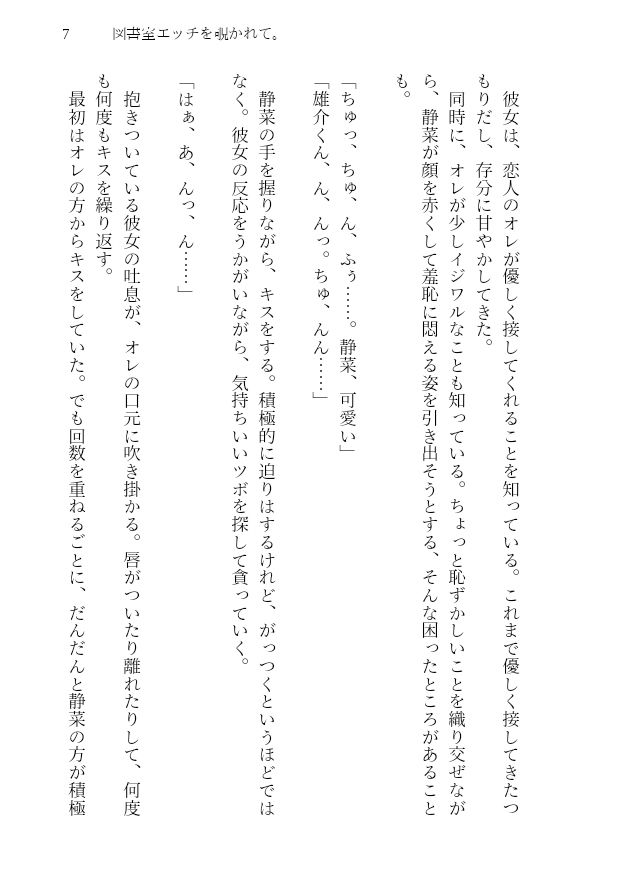 7
図書室エッチを覗かれて。
　彼女は、恋人のオレが優しく接してくれることを知っている。これまで優しく接してきたつ
もりだし、存分に甘やかしてきた。
　同時に、オレが少しイジワルなことも知っている。ちょっと恥ずかしいことを織り交ぜなが
ら、静菜が顔を赤くして羞恥に悶える姿を引き出そうとする、そんな困ったところがあること
も。
「ちゅっ、ちゅ、ん、ふぅ……。静菜、可愛い」
「雄介くん、ん、んっ。ちゅ、んん……」
　静菜の手を握りながら、キスをする。積極的に迫りはするけれど、がっつくというほどでは
なく。彼女の反応をうかがいながら、気持ちいいツボを探して貪っていく。
「はぁ、あ、んっ、ん……」
　抱きついている彼女の吐息が、オレの口元に吹き掛かる。唇がついたり離れたりして、何度
も何度もキスを繰り返す。
　最初はオレの方からキスをしていた。でも回数を重ねるごとに、だんだんと静菜の方が積極